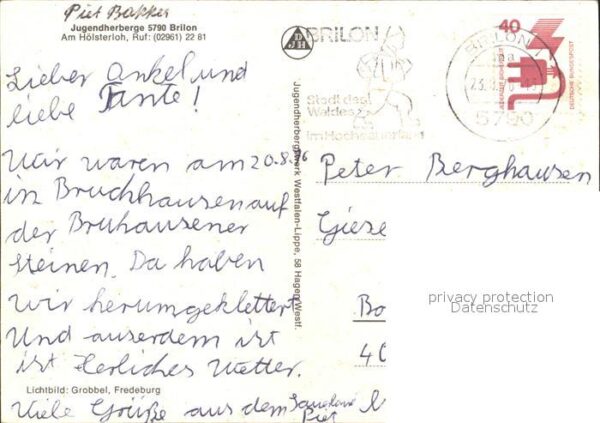 Piet Bakker
Jugendherberge 5790 Brilon
Am Hölsterloh, Ruf: (02961) 22 81
Lieber Onkel und
liebe Tante!
Wir waren am 20.8.76
in Bruchhausen auf
der Bruhausener
steinen. Da haben
wir herumgeklettert
Und auserdem ist
ist Herliches Wetter.
Lichtbild: Grobbel, Fredeburg
Viele Grüße aus dem Sauerland
Piet
DJH
Jugendherbergswerk Westfalen-Lippe, 58 Hagen/Westf.
BRILON
Stadt des
Waldes
im Hochsauerland
BRILON 1
5790
40
DEUTSCHE BUNDESPOST
Peter Berghausen
Giese
Bo
40
privacy protection
Datenschutz